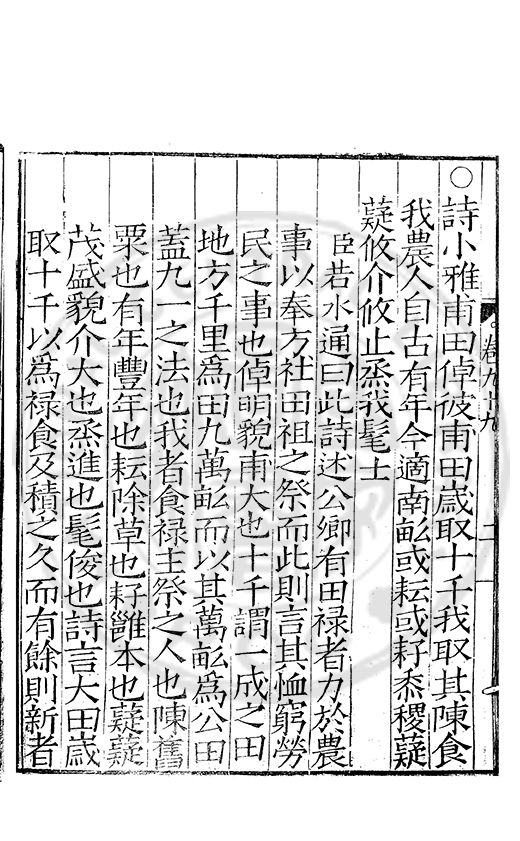 ○詩小雅甫田倬彼甫田歲取十千我取其陳食
我農人自古有年今適南畝或耘或耔黍稷薿
薿攸介攸止烝我髦士
臣若水通曰此詩述公卿有田禄者力於農
事以奉方社田祖之祭而此則言其恤窮勞
民之事也倬明貌甫大也十千謂一成之田
地方千里爲田九萬畝而以其萬畝爲公田
蓋九一之法也我者食禄主祭之人也陳舊
粟也有年豐年也耘除草也耔雝本也薿薿
茂盛貌介大也烝進也髦俊也詩言大田歲
取十千以爲禄食及積之久而有餘則新者
卷九十九
二